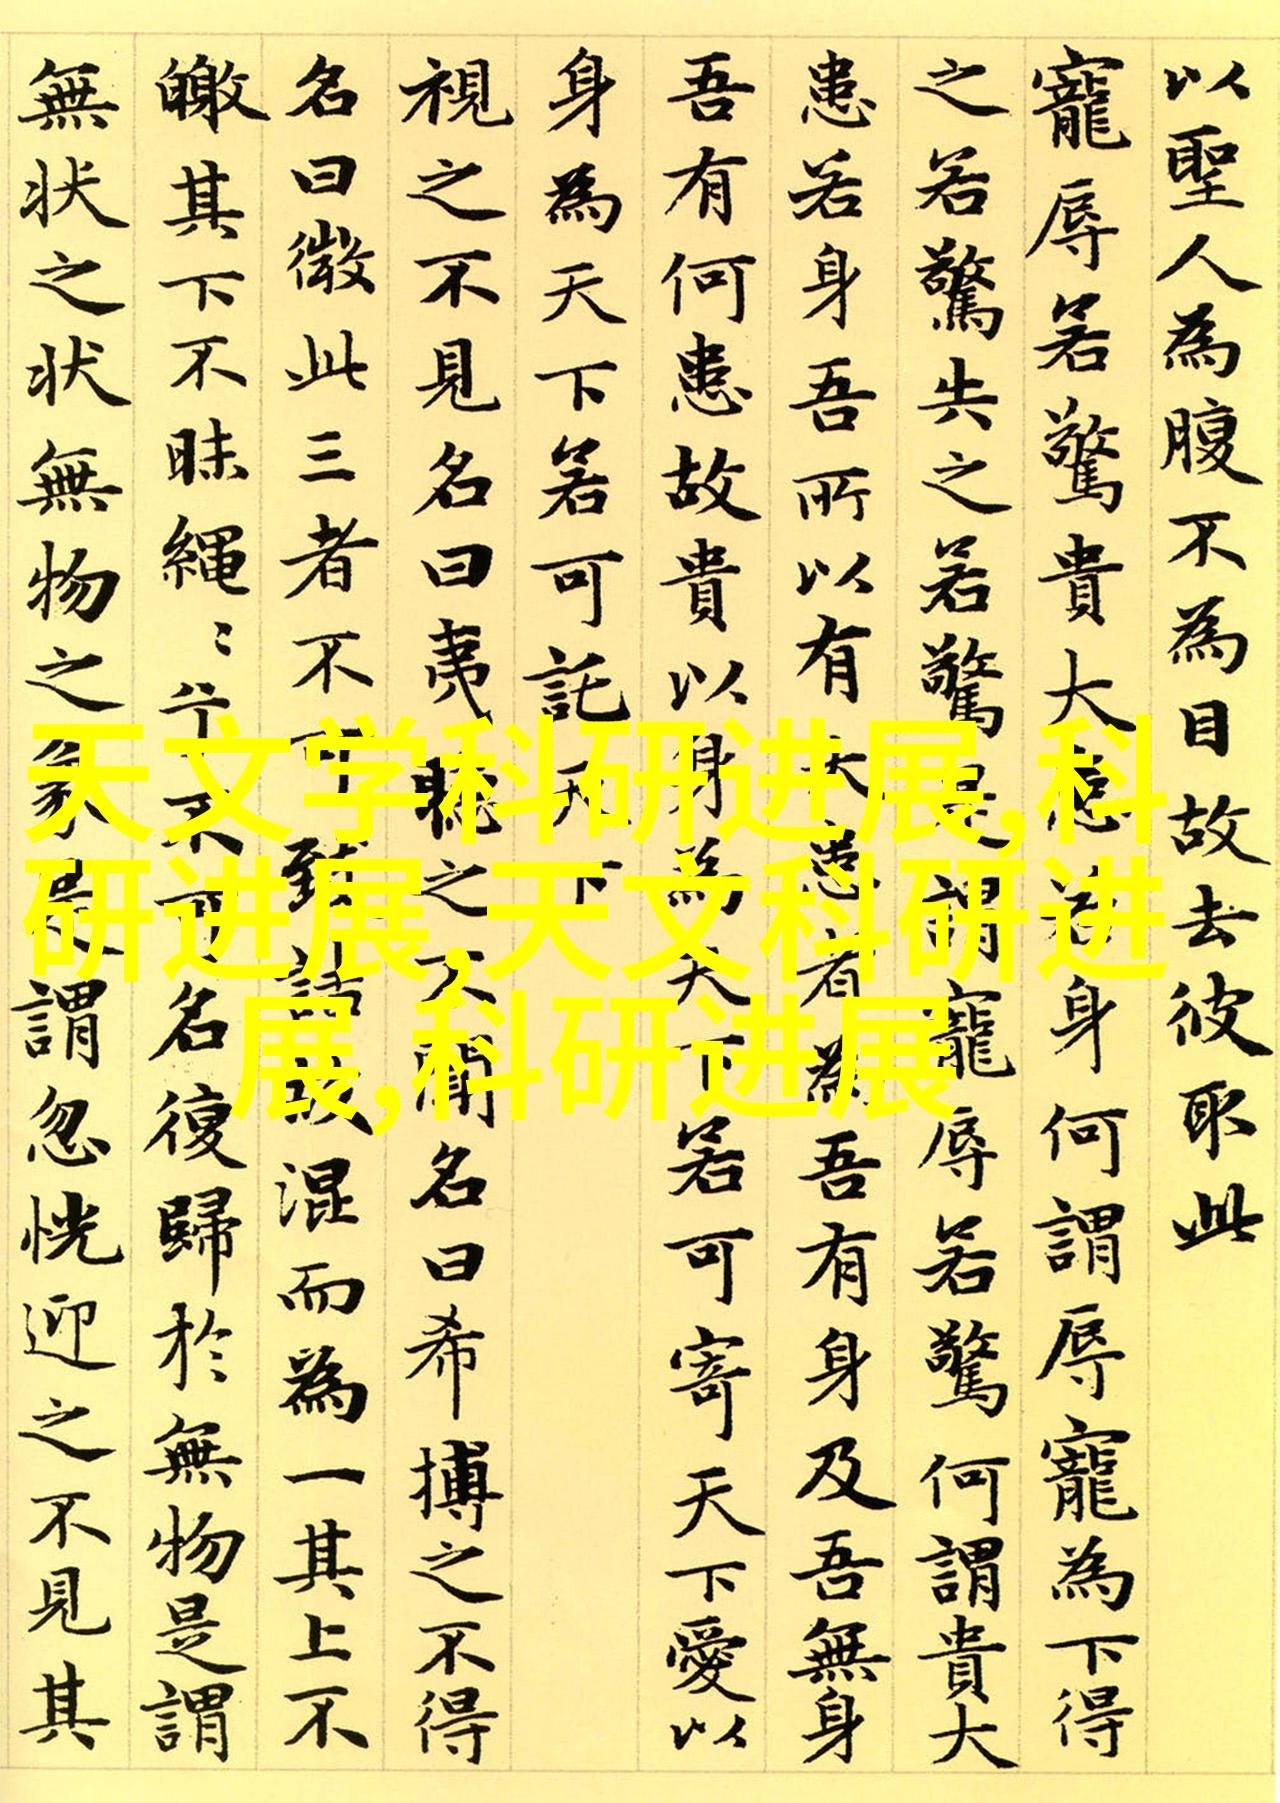 以聖人為腹不為目故去彼取此
寵辱若驚貴大患若身何謂辱寵為下得
之若驚失之若驚是謂寵辱若驚何謂貴大
患若身吾所以有大患者為吾有身及吾無身
吾有何患故貴以身為天下若可寄天下愛以
身為天下若可託天下
視之不見名曰夷聽之不聞名曰希搏之不得
名曰微此三者不可致詰故混而為一其上不
皦其下不昧繩〻兮不可名復歸於無物是謂
無状之状無物之象是謂忽恍迎之不見其
天文学科研进展,科
研进展,天文科研进
展,科研进展